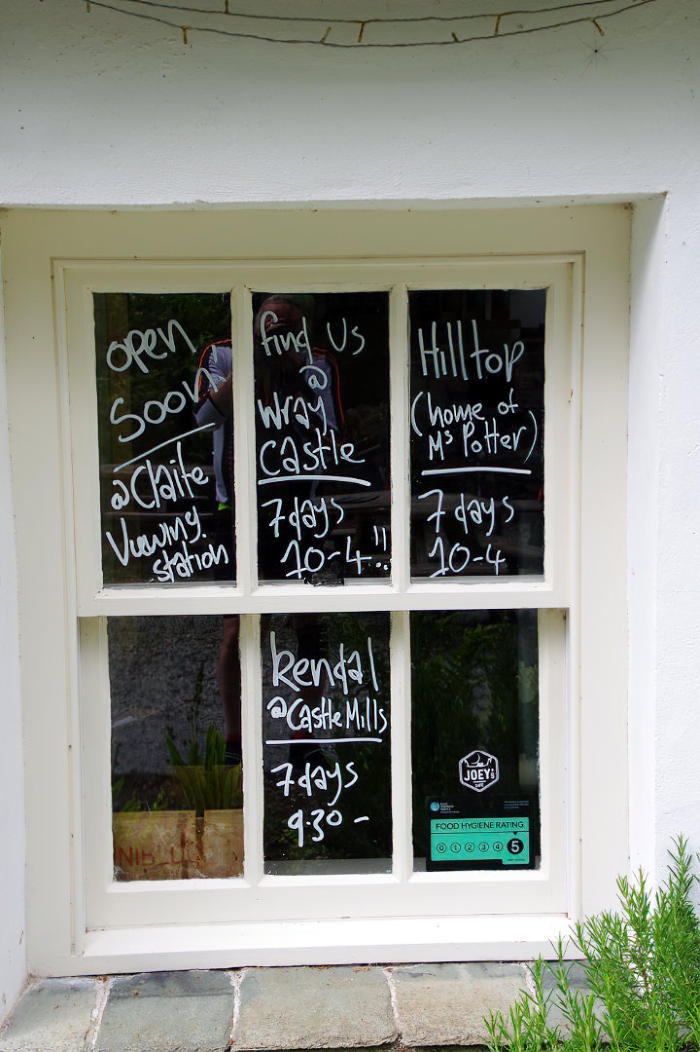 open
Soon
@Claife
Viewing
station
find us
@
Wray
Castle
7days
10-4"..
Hilltop
(home of
Ms Potter)
7 days
10-4
Kendal
@Castle Mills
7days
9.30-
JOEY'S
CAFE
FOOD HYGIENE RATING
0 1 2 3 4 5